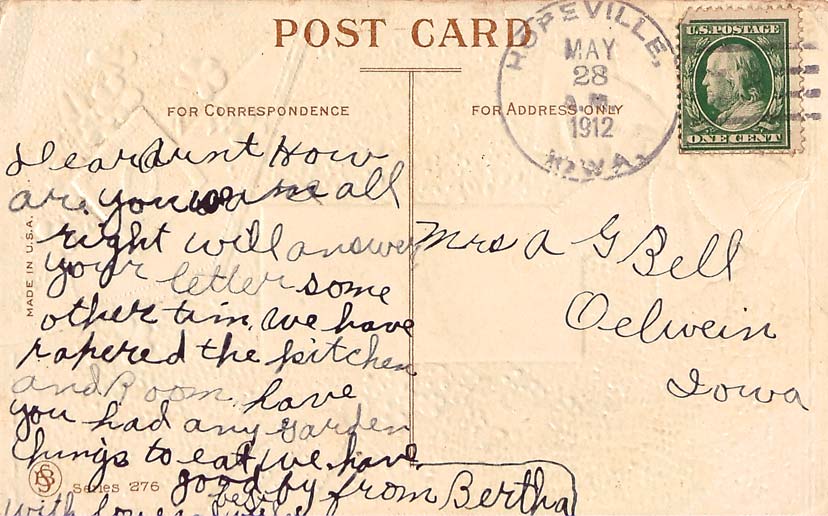 POST CARD
HOPEVILLE,
MAY
28
A.M.
1912
IOWA.
U.S. POSTAGE
ONE CENT
FOR CORRESPONDENCE
FOR ADDRESS ONLY
MADE IN U.S.A.
Dear Aunt How
are you we are all
right will answer
your letter some
other tim, we have
papered the kitchen
and Room, have
you had any garden
things to eat, we have
good by from Bertha
with love
Series 276
Mrs A G Bell
Oelwein
Iowa